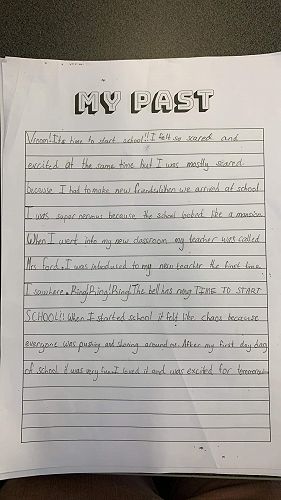 MY PAST
Vroom! Its time to start school!! I felt so scared and
excited at the same time but I was mostly scared
because I had to make new friends. When we arrived at school
I was super nervous because the school looked like a mansion.
When I went into my new classroom my teacher was called
Mrs Ford. I was introduced to my new teacher the first time
I saw here. Ring! Ring! Ring! The bell has rang TIME TO START
SCHOOL!! When I started school it felt like chaos because
everyone was pushing and shoving around me. After my first day
of school it was very fun. I loved it and was excited for tomorrow